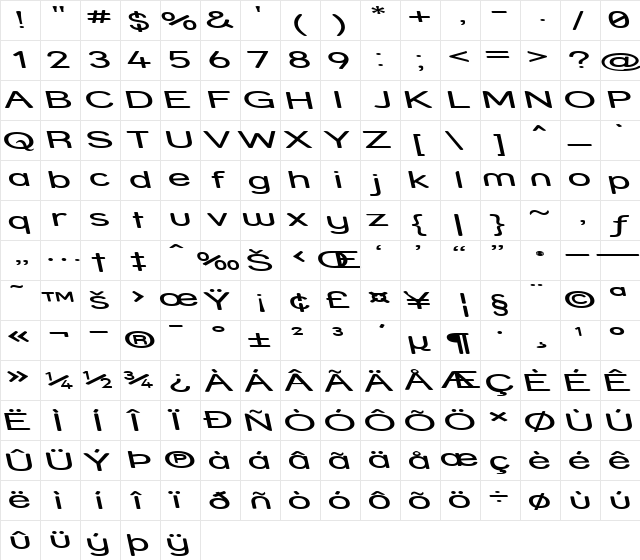 ! " # $ % & ' ( ) * + , - . / 0
1 2 3 4 5 6 7 8 9 : ; < = > ? @
A B C D E F G H I J K L M N O P
Q R S T U V W X Y Z [ \ ] ^ _ `
a b c d e f g h i j k l m n o p
q r s t u v w x y z { | } ~ ‚ ƒ
„ … † ‡ ˆ ‰ Š ‹ Œ ‘ ’ “ ” • – —
˜ ™ š › œ Ÿ ¡ ¢ £ ¤ ¥ ¦ § ¨ © ª
« ¬ - ® ¯ ° ± ² ³ ´ µ ¶ · ¸ ¹ º
» ¼ ½ ¾ ¿ À Á Â Ã Ä Å Æ Ç È É Ê
Ë Ì Í Î Ï Ð Ñ Ò Ó Ô Õ Ö × Ø Ù Ú
Û Ü Ý Þ ß à á â ã ä å æ ç è é ê
ë ì í î ï ð ñ ò ó ô õ ö ÷ ø ù ú
û ü ý þ ÿ